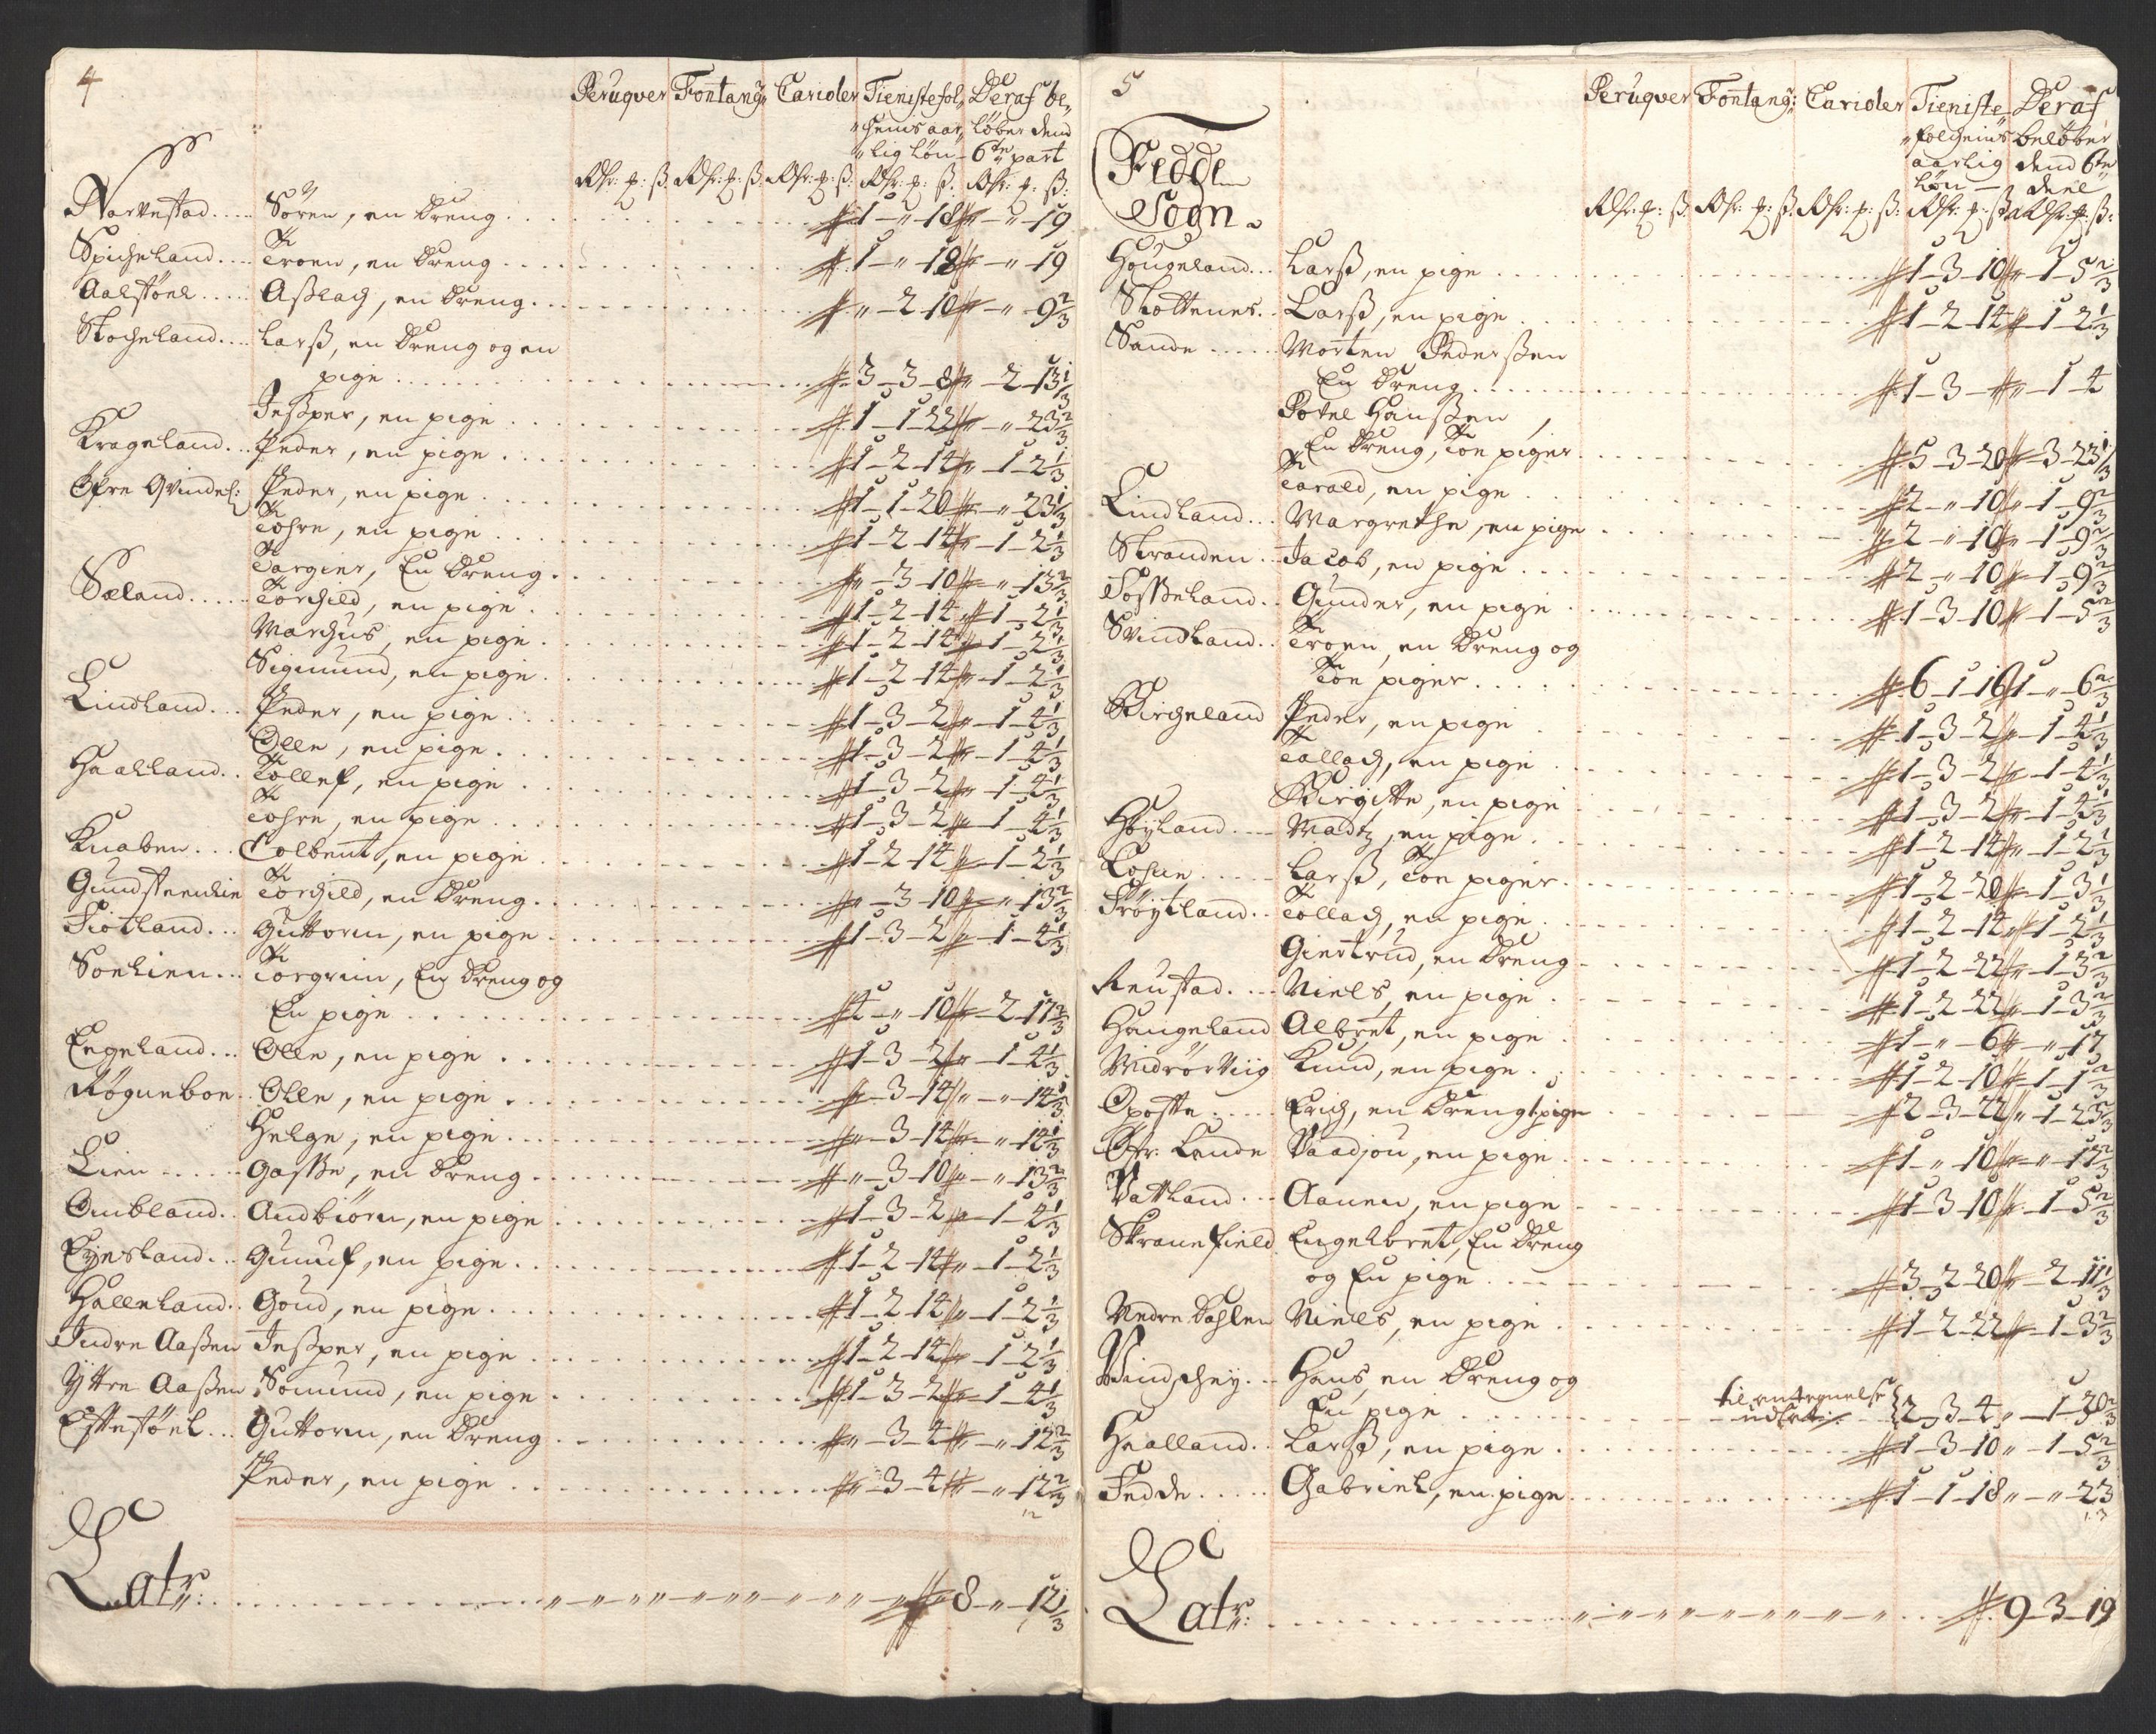 4
Peruqver Fontang: Carioler Tienistefol= Deraf be=
=chens aar= løber dend
=lig løn 6te part
Rdr: ₰: ß. Rdr: ₰: ß: Rdr: ₰: ß: Rdr: ₰: ß. Rdr: ₰: ß:
Narvestad .... Søren, en Dreng .... 1 - " - 18 " - " - 19
Spicheland .... Troen, en Dreng .... 1 - " - 18 " - " - 19
Aalstöel .... Aslach, en Dreng .... " - 2 - 10 " - " - 9 2/3
Stocheland .... Larß, en Dreng og en
pige .... 3 - 3 - 8 " - 2 - 13 1/3
Jesper, en pige .... 1 - 1 - 22 " - " - 23 2/3
Krageland .. Peder, en pige .... 1 - 2 - 14 " - 1 - 2 1/3
Øfre Qvindel: Peder, en pige .... 1 - 1 - 20 " - " - 23 1/3
Tohre, en pige .... 1 - 2 - 14 " - 1 - 2 1/3
Targier, En Dreng .... " - 3 - 10 " - " - 13 2/3
Sæland ..... Torchild, en pige .... 1 - 2 - 14 " - 1 - 2 1/3
Marchus, en pige .... 1 - 2 - 14 " - 1 - 2 1/3
Sigmund, en pige .... 1 - 2 - 14 " - 1 - 2 1/3
Lindland ... Peder, en pige .... 1 - 3 - 2 " - 1 - 4 1/3
Olle, en pige .... 1 - 3 - 2 " - 1 - 4 1/3
Haaland .. Tollef, en pige .... 1 - 3 - 2 " - 1 - 4 1/3
Tohre, en pige .... 1 - 3 - 2 " - 1 - 4 1/3
Knaben ... Colbent, en pige .... 1 - 2 - 14 " - 1 - 2 1/3
Torchild, en Dreng .... " - 3 - 10 " - " - 13 2/3
Fiotland ... Guttorm, en pige .... 1 - 3 - 2 " - 1 - 4 1/3
Sonlien ... Torgrim, En Dreng og
En pige .... 4 - " - 10 " - 2 - 17 2/3
Engeland ... Olle, en pige .... 1 - 3 - 2 " - 1 - 4 1/3
Røgneboe .. Olle, en pige .... " - 3 - 14 " - " - 14 1/3
Helge, en pige .... " - 3 - 14 " - " - 14 1/3
Lien ..... Gasse, en Dreng .... " - 3 - 10 " - " - 13 2/3
Ombland .. Andbiörn, en pige .... 1 - 3 - 2 " - 1 - 4 1/3
Eyesland ... Gunuf, en pige .... 1 - 2 - 14 " - 1 - 2 1/3
Halleland .. Goud, en pige .... 1 - 2 - 14 " - 1 - 2 1/3
Indre Aaßen Jesper, en pige .... 1 - 2 - 14 " - 1 - 2 1/3
Yttre Aaßen Somund, en pige .... 1 - 3 - 2 " - 1 - 4 1/3
Eftestöel ... Guttorm, en Dreng .... " - 3 - 4 " - " - 12 2/3
Peder, en pige .... " - 3 - 4 " - " - 12 2/3
Latr: .... 8 - " - 12 1/3
5
Peruqver Fontang: Carioler Tieniste= Deraf
=folchens beløber
aarlig dend 6te
løn deel
Rdr: ₰: ß. Rdr: ₰: ß. Rdr: ₰: ß: Rdr: ₰: ß Rdr: ₰: ß:
Fedde
Sogn.
Hougeland ... Larß, en pige .... 1 - 3 - 10 " - 1 - 5 2/3
Stottenes .. Larß, en pige .... 1 - 2 - 14 " - 1 - 2 1/3
Sande ..... Morten Pederßen
En Dreng .... 1 - 3 - " " - 1 - 4
Potel Hanßen,
En Dreng, Toe piger .... 5 - 3 - 20 " - 3 - 23 1/3
Tarald, en pige .... 2 - " - 10 " - 1 - 9 2/3
Lindland ... Margrethe, en pige .... 2 - " - 10 " - 1 - 9 2/3
Stranden .. Jacob, en pige .... 2 - " - 10 " - 1 - 9 2/3
Fosseland .. Gunder, en pige .... 1 - 3 - 10 " - 1 - 5 2/3
Svindland .. Troen, en Dreng og
Toe piger .... 6 - 1 - 16 1 - " - 6 2/3
Bircheland Peder, en pige .... 1 - 3 - 2 " - 1 - 4 1/3
Tallach, en pige .... 1 - 3 - 2 " - 1 - 4 1/3
Birgitte, en pige .... 1 - 3 - 2 " - 1 - 4 1/3
Høyland ... Madtz, en pige .... 1 - 2 - 14 " - 1 - 2 1/3
Larß, Toe piger .... 1 - 2 - 20 " - 1 - 3 1/3
Frøytland .. Tollach, en pige .... 1 - 2 - 14 " - 1 - 2 1/3
Giertrud, en Dreng .... 1 - 2 - 22 " - 1 - 3 2/3
Reustad .... Niels, en pige .... 1 - 2 - 22 " - 1 - 3 2/3
Haugeland Albret, en pige .... 1 - " - 6 " - " - 17
Knud, en pige .... 1 - 2 - 10 " - 1 - 1 2/3
Opofte .... Erich, en Dreng 1 pige .... 2 - 3 - 22 " - 1 - 23 2/3
Øfr: Lende Vaadjou, en pige .... 1 - " - 10 " - " - 17 2/3
Vatland ... Aanen, en pige .... 1 - 3 - 10 " - 1 - 5 2/3
Skranefield Engelbret, En Dreng
og En pige .... 3 - 2 - 20 " - 2 - 11 1/3
Nedre Dahlen Niels, en pige .... 1 - 2 - 22 " - 1 - 3 2/3
Hans, en Dreng og
En pige .... til antegnelse
2 - 3 - 4 " - 1 - 20 2/3
Haalland .. Larß, en pige .... 1 - 3 - 10 " - 1 - 5 2/3
Fedde ..... Gabriel, en pige .... 1 - 1 - 18 " - " - 23
Latr: .... 9 - 3 - 19